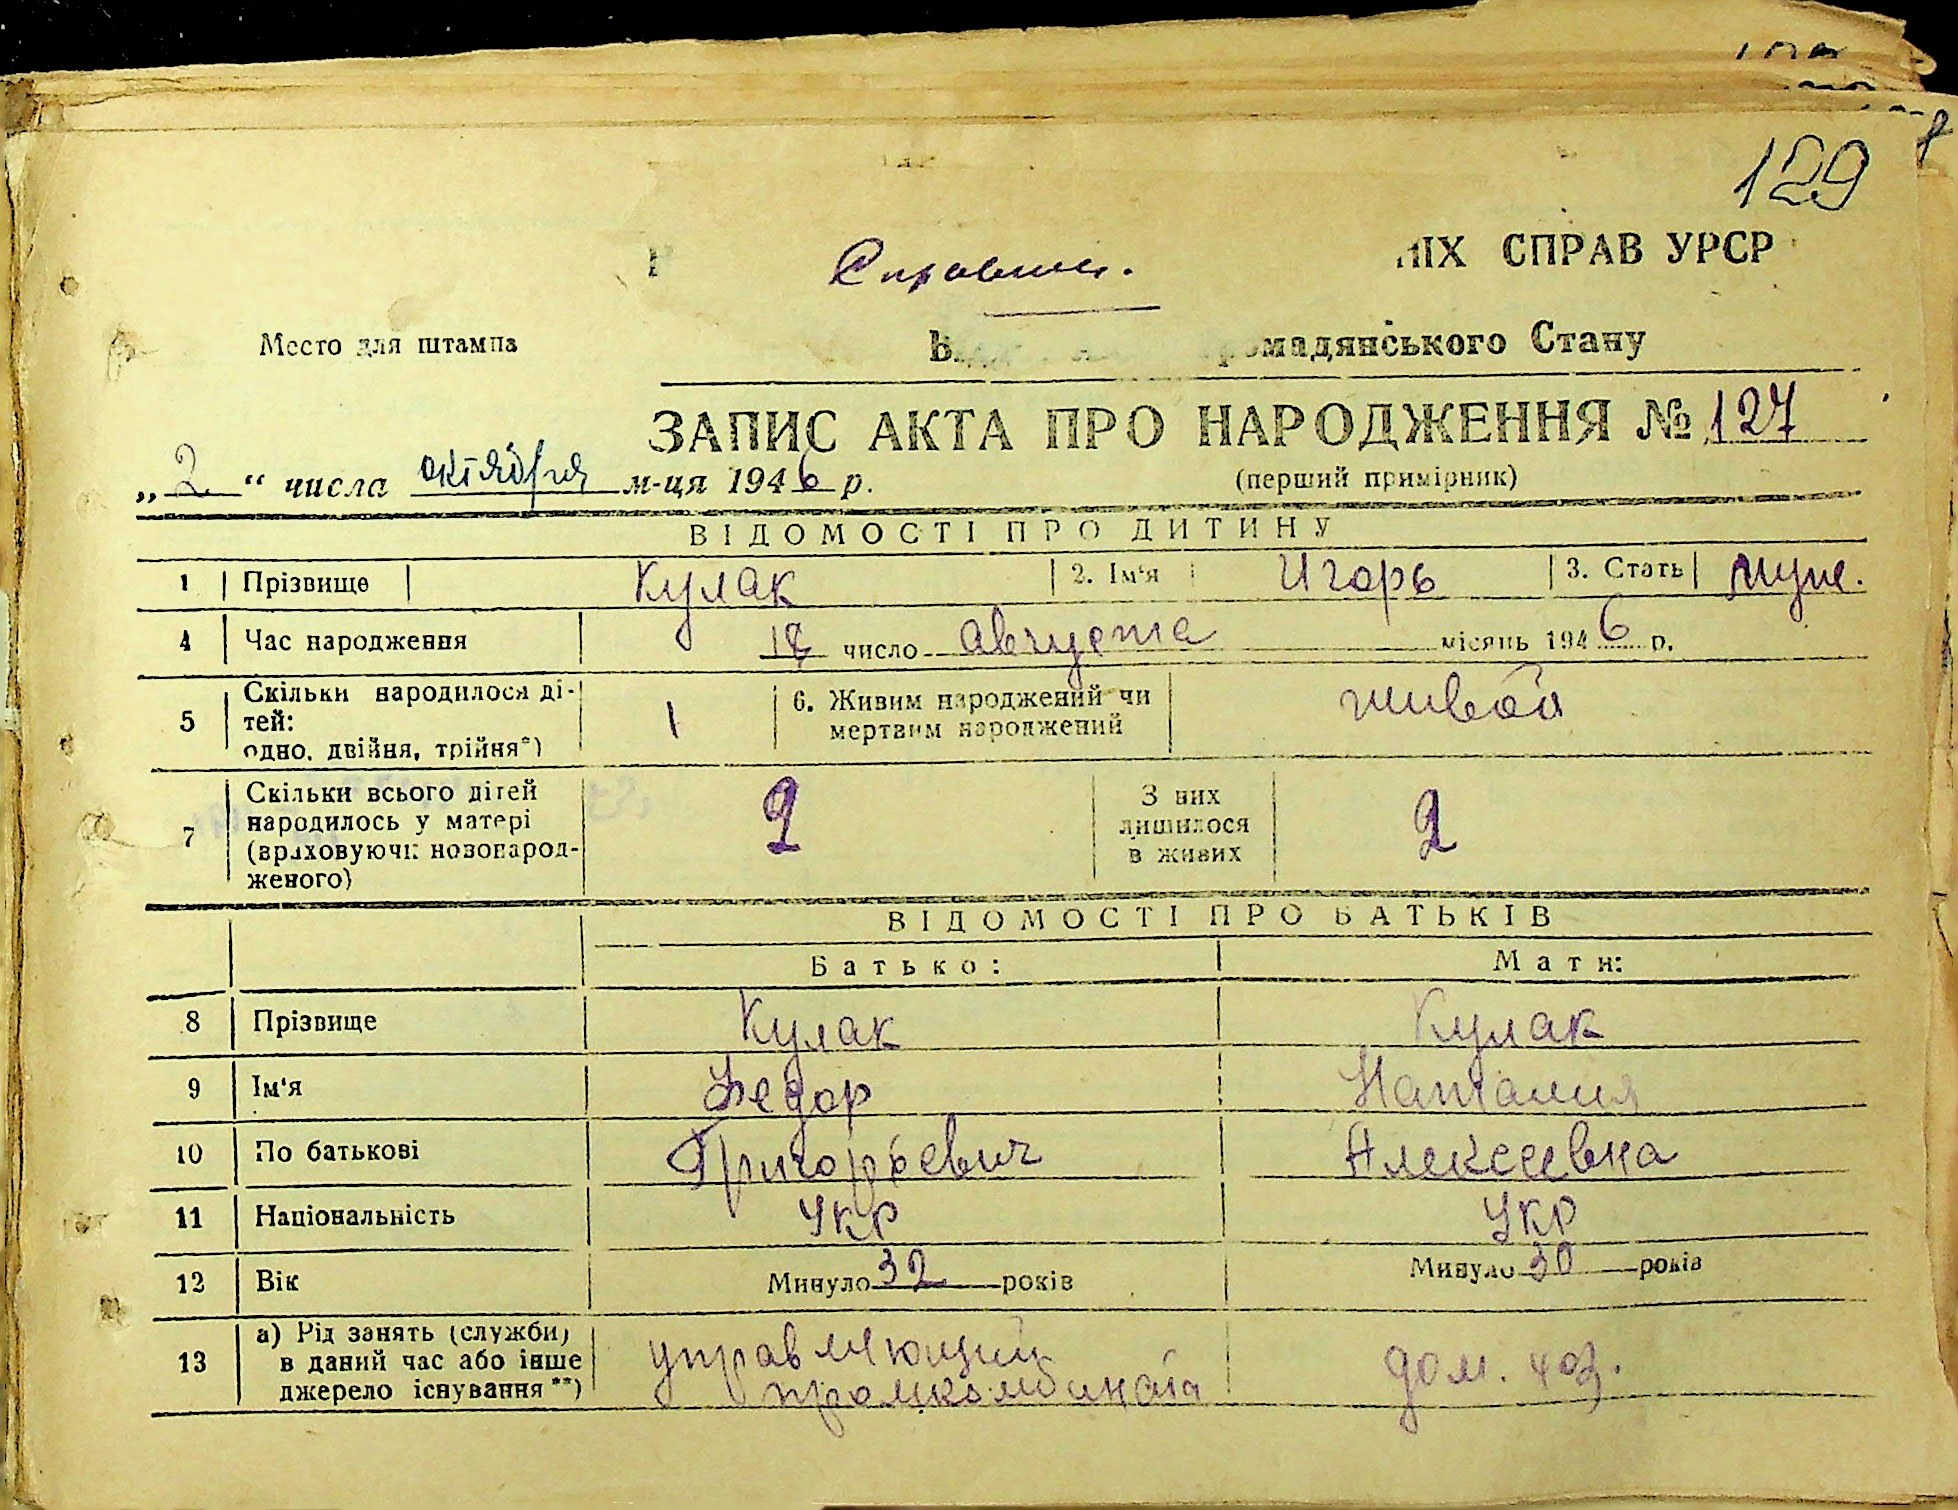 129
ніх СПРАВ УРСР
Место для штампа
громадянського Стану
ЗАПИС АКТА ПРО НАРОДЖЕННЯ № 127
„ 2 “ числа октября м-ця 1946 р.
(перший примірник)
ВІДОМОСТІ ПРО ДИТИНУ
1 Прізвище Кулак 2. Ім'я Игорь 3. Стать муж.
4 Час народження 18 число августа місяць 1946 р.
5 Скільки народилося дітей: одно, двійня, трійня*) 1 6. Живим народжений чи мертвим народжений живой
7 Скільки всього дітей народилось у матері (враховуючи новонародженого) 2 З них лишилося в живих 2
ВІДОМОСТІ ПРО БАТЬКІВ
Батько: Мати:
8 Прізвище Кулак Кулак
9 Ім'я Федор Наталия
10 По батькові Григорьевич Алексеевна
11 Національність Укр Укр
12 Вік Минуло 32 років Минуло 30 років
13 а) Рід занять (служби) в даний час або інше джерело існування**) управляющий промкомбината дом. хоз.